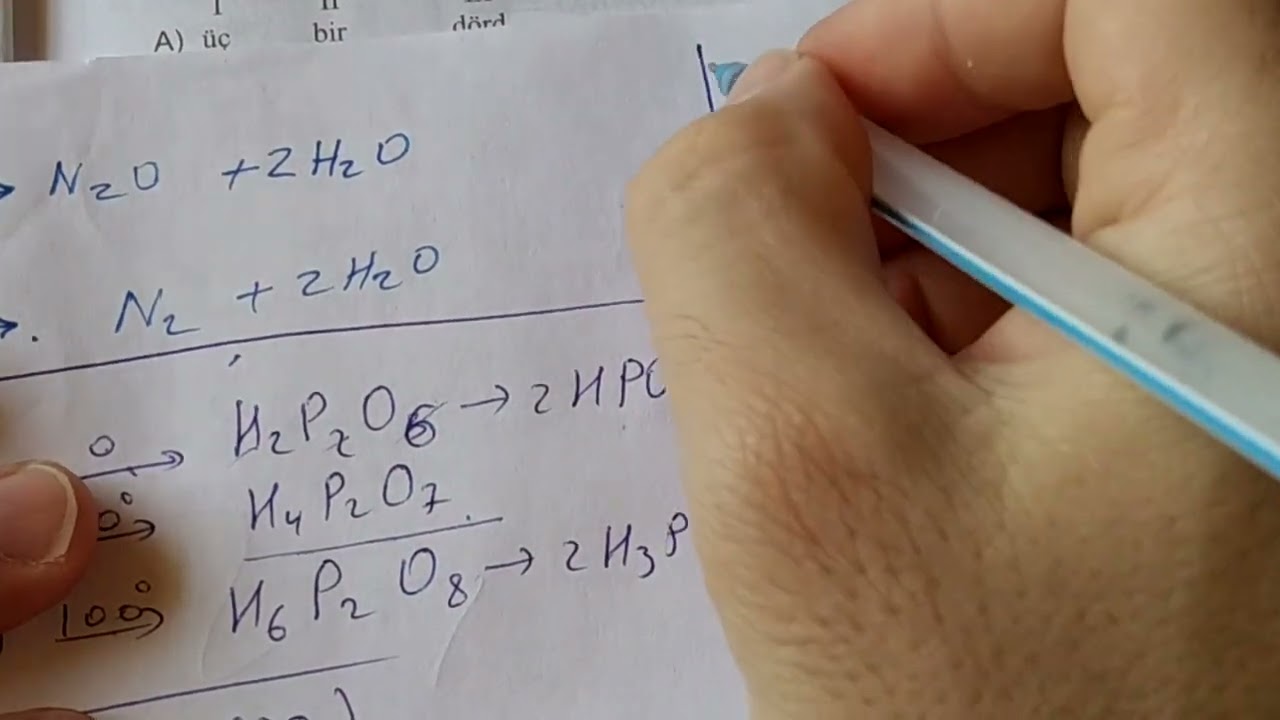 I II
A) üç bir dörd
→ N₂O + 2H₂O
→. N₂ + 2H₂O
0 → H₂P₂O₆ → 2HPO
0° → H₄P₂O₇.
100° → H₆P₂O₈ → 2H₃P